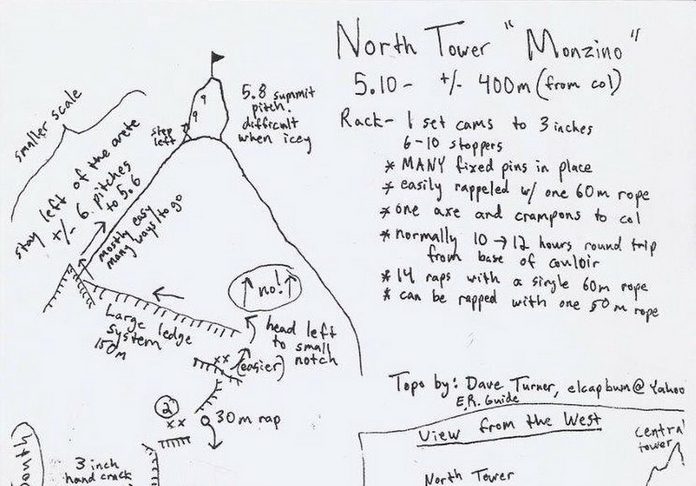 North Tower "Monzino"
5.10- +/- 400m (from col)
Rack- 1 set cams to 3 inches
6-10 stoppers
* MANY fixed pins in place
* easily rappeled w/ one 60m rope
* one axe and crampons to col
* normally 10 → 12 hours round trip
from base of couloir
* 14 raps with a single 60m rope
* can be rapped with one 50m rope
Topo by: Dave Turner, elcapbum@yahoo
E.R. Guide
smaller scale
5.8 summit
pitch.
difficult
when icey
step
left
stay left of the arete
+/- 6 pitches
to 5.6
mostly easy
many ways to go
no!
Large ledge
system
150m
head left
to small
notch
(easier)
xx
2
xx
30m rap
3 inch
hand crack
View from the West
central
tower
North Tower